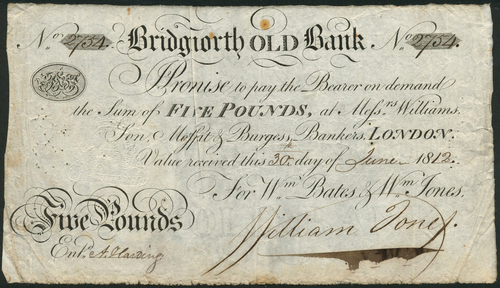 No. 2754. Bridgnorth OLD Bank No. 2754.
I Promise to pay the Bearer on demand
the Sum of FIVE POUNDS, at Mess.rs Williams,
Son, Moffit & Burgess, Bankers, LONDON.
Value received this 30th day of June 1812.
For Wm. Bates, & Wm. Jones,
Five Pounds
William Jones.
Ent.d A. Harding